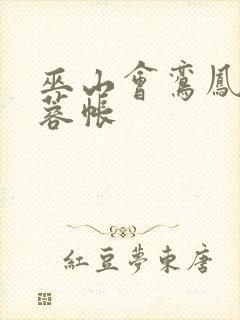 巫山會鸞鳳
蓉帳
紅豆夢東唐